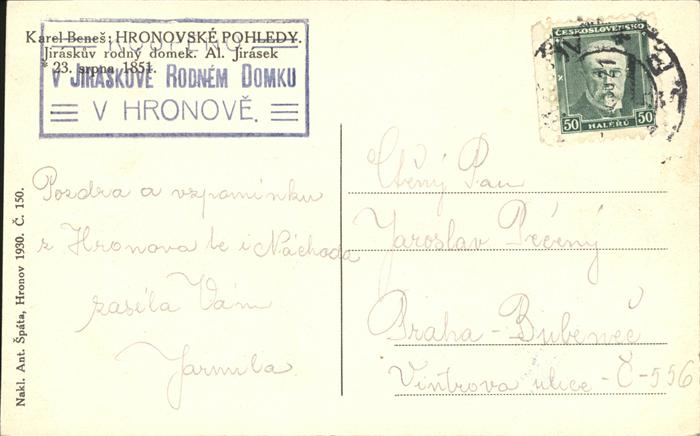 Karel Beneš: HRONOVSKÉ POHLEDY.
Jiráskův rodný domek. Al. Jirásek
* 23. srpna 1851.
V JIRÁSKOVĚ RODNÉM DOMKU
V HRONOVĚ.
ČESKOSLOVENSKO
50 HALÉŘŮ 50
Pozdra a vzpomínku
z Hronova le i Náchoda
zasílá Vám
Jarmila.
Ctěný Pan
Jaroslav Pěčený
Praha - Bubeneč
Vintrova ulice - Č - 556
Nakl. Ant. Špáta, Hronov 1930. Č. 150.